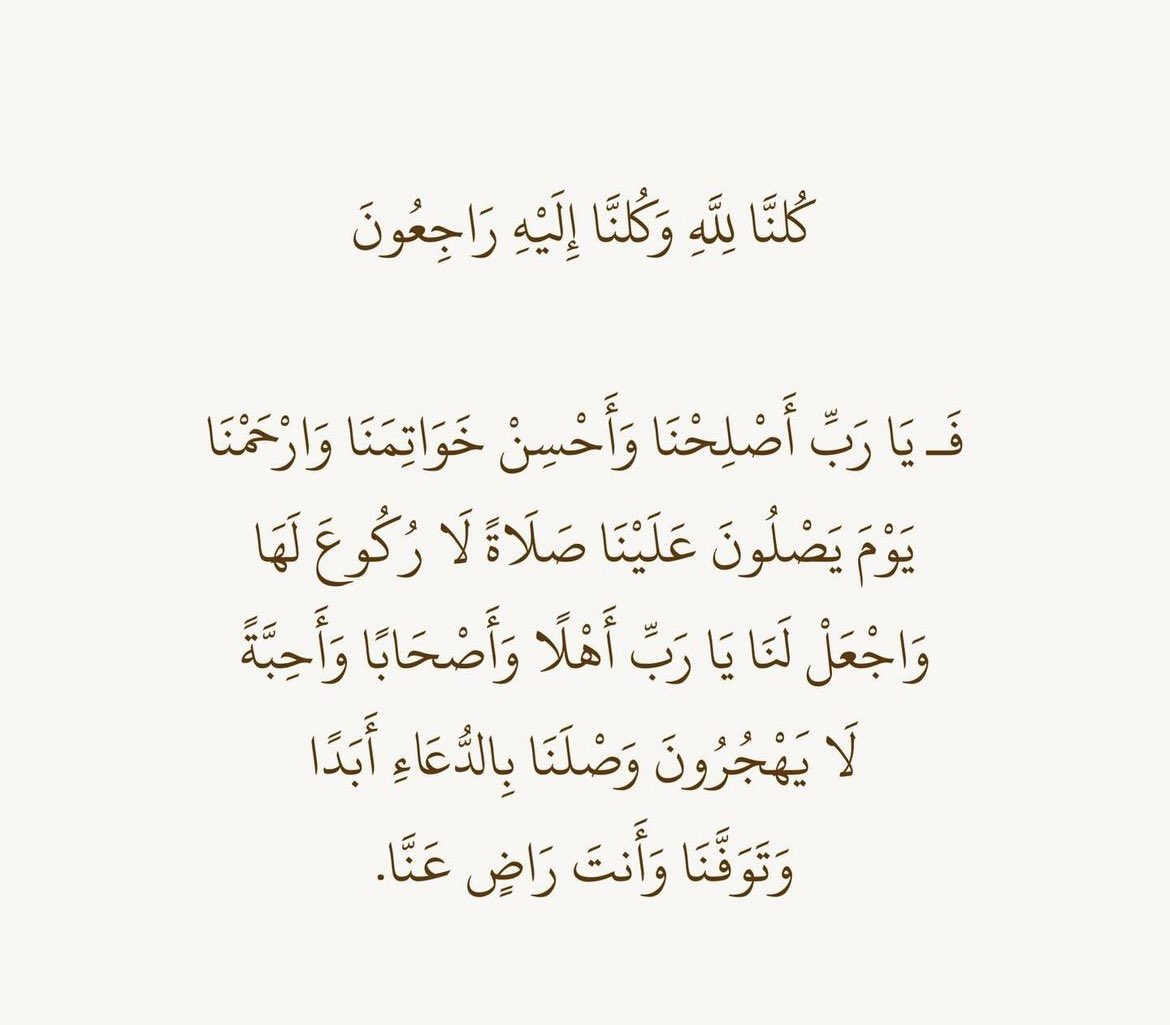 كُلنَّا لِلَّهِ وَكُلنَّا إِلَيْهِ رَاجِعُونَ
فَـ يَا رَبِّ أَصْلِحْنَا وَأَحْسِنْ خَوَاتِمَنَا وَارْحَمْنَا
يَوْمَ يَصْلُونَ عَلَيْنَا صَلَاةً لَا رُكُوعَ لَهَا
وَاجْعَلْ لَنَا يَا رَبِّ أَهْلًا وَأَصْحَابًا وَأَحِبَّةً
لَا يَهْجُرُونَ وَصْلَنَا بِالدُّعَاءِ أَبَدًا
وَتَوَفَّنَا وَأَنتَ رَاضٍ عَنَّا.